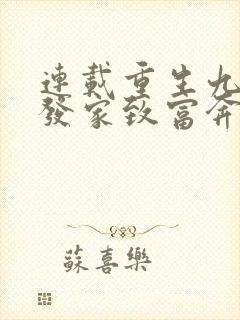 連載重生九
發家致富奔
蘇喜樂